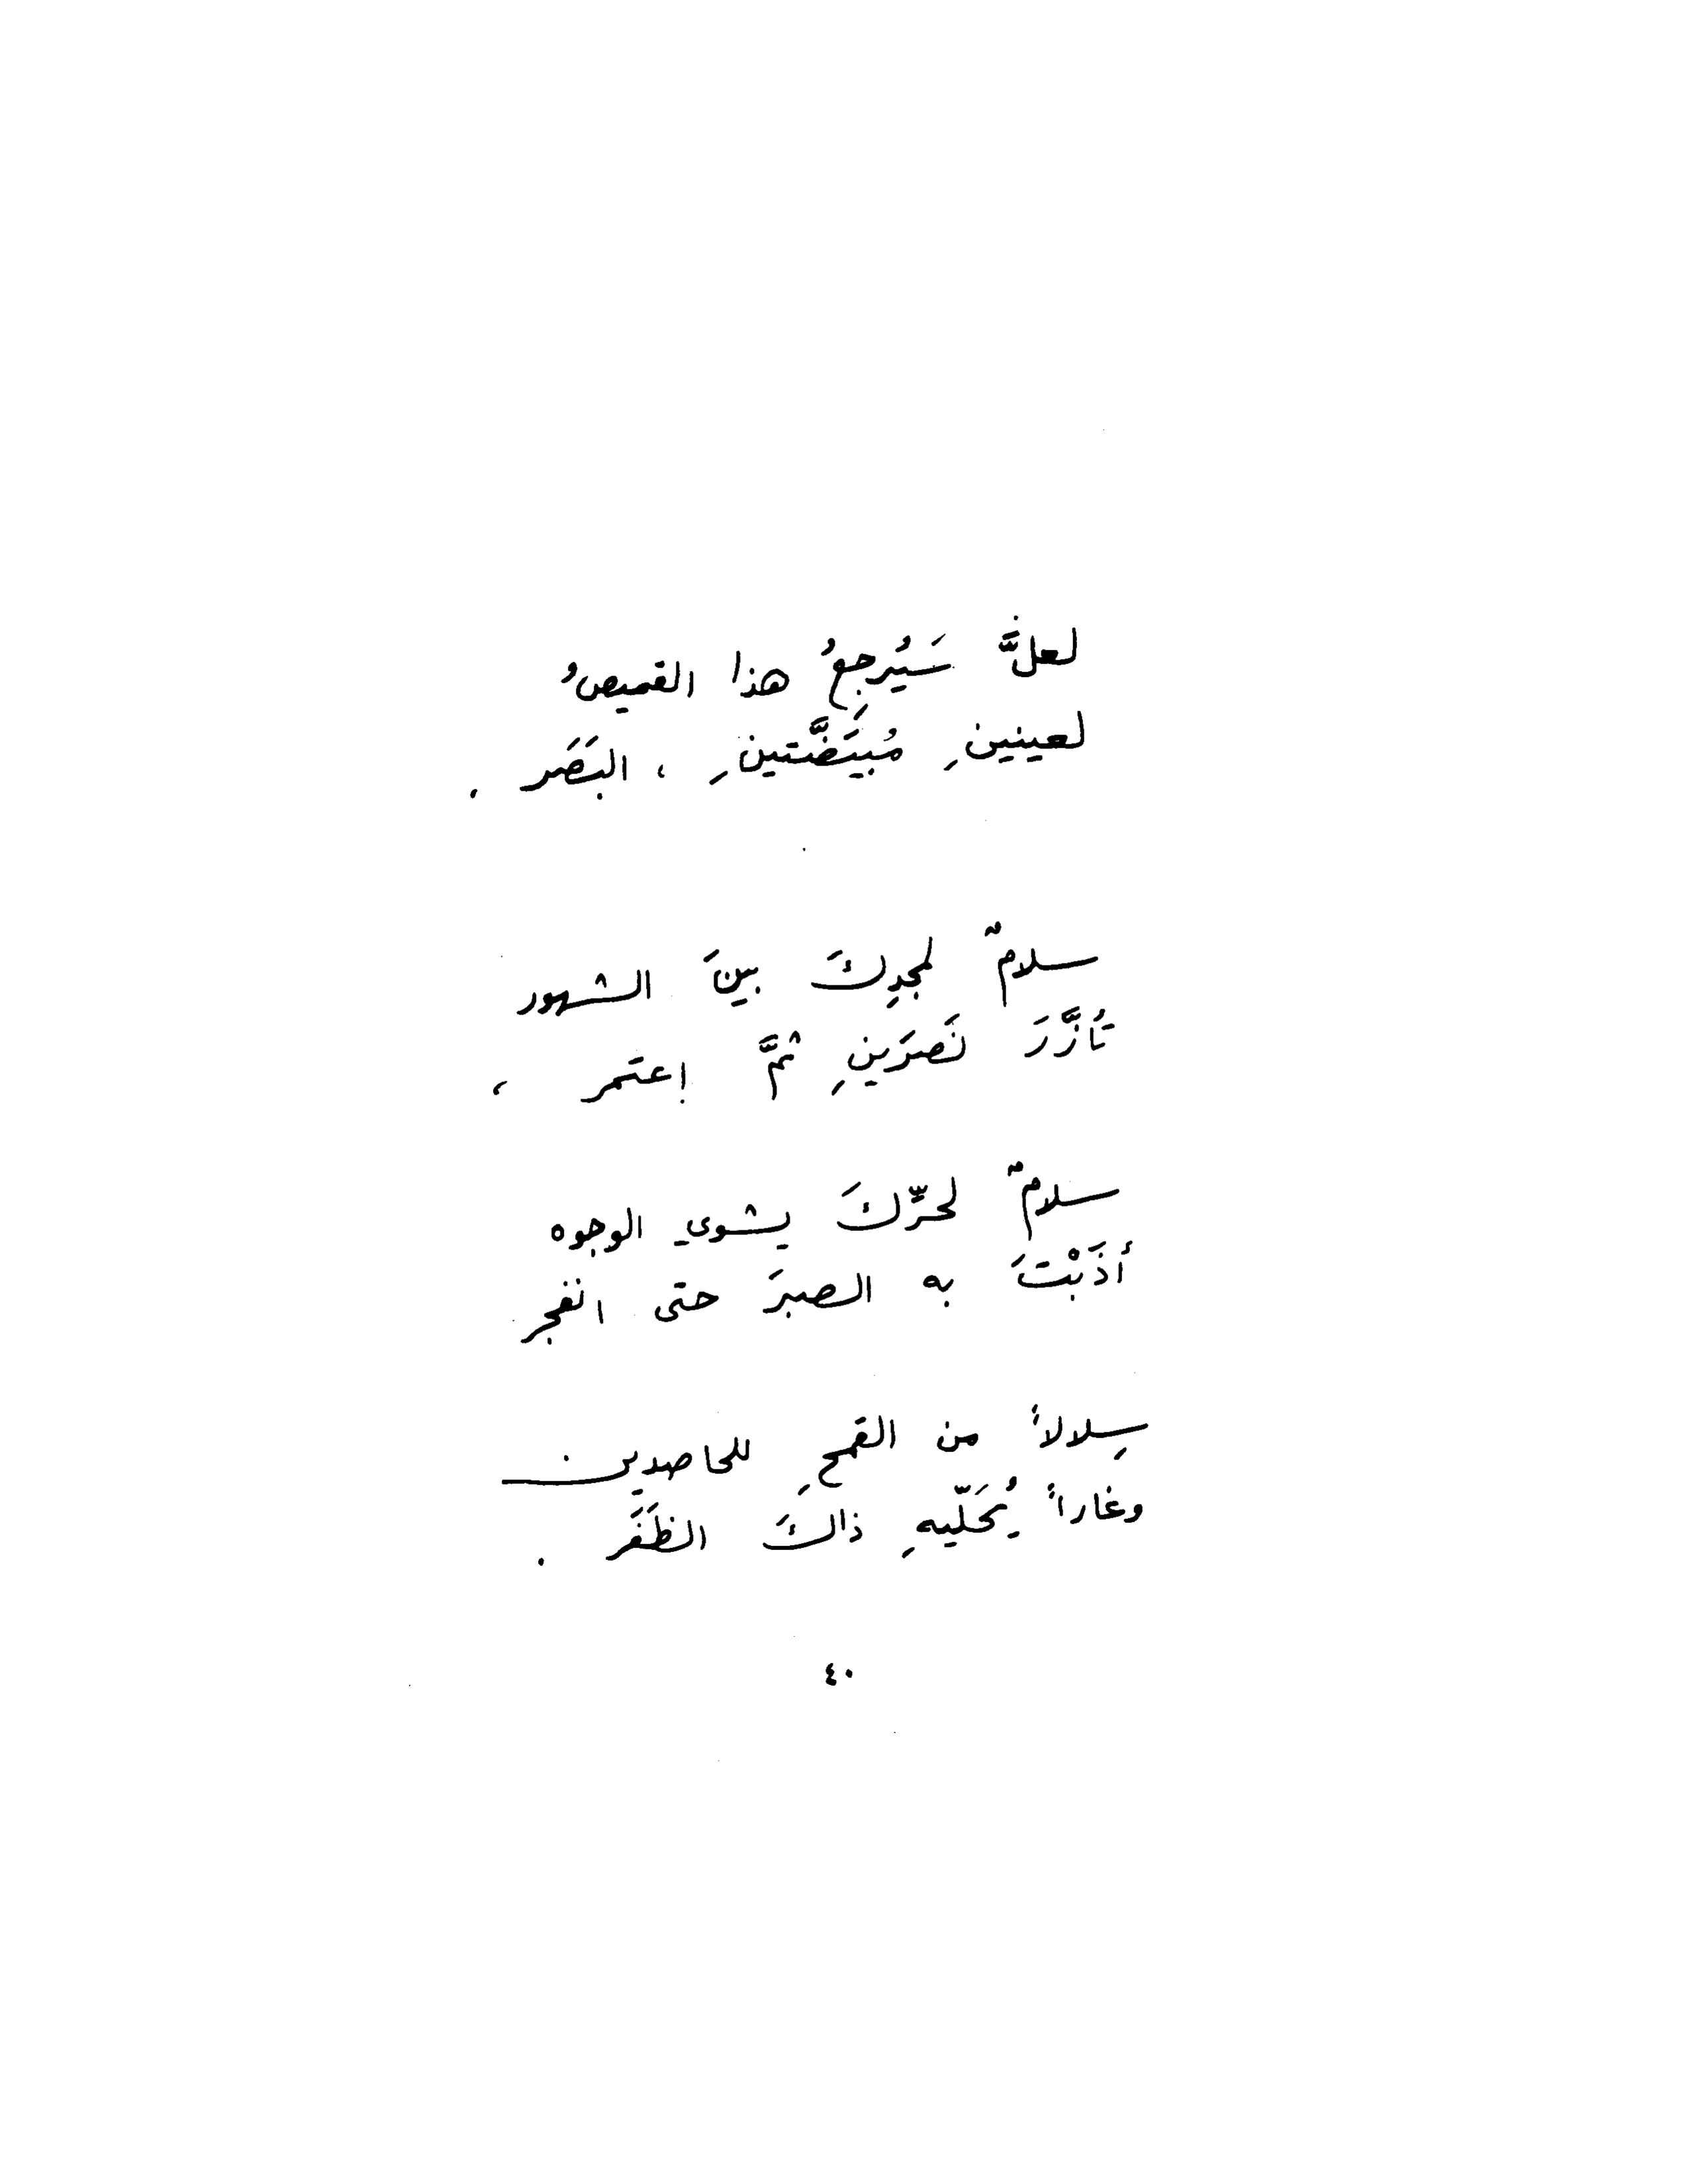 لعلَّ سَيُرجِعُ هذا القميصُ
لعينينِ مُبيَضَّتينِ ، البَصَر .
سلامٌ لمجدِكَ بينَ الشهور
تَأزَّرَ نَصرَينِ ثمَّ اعتمر ،
سلامٌ لحرِّكَ يشوي الوجوه
أذَبْتَ به الصبرَ حتى انفجر
سِلالاً من القمحِ للحاصدين
وغاراً يُحَلّيهِ ذاكَ الظَفَر .
٤٠